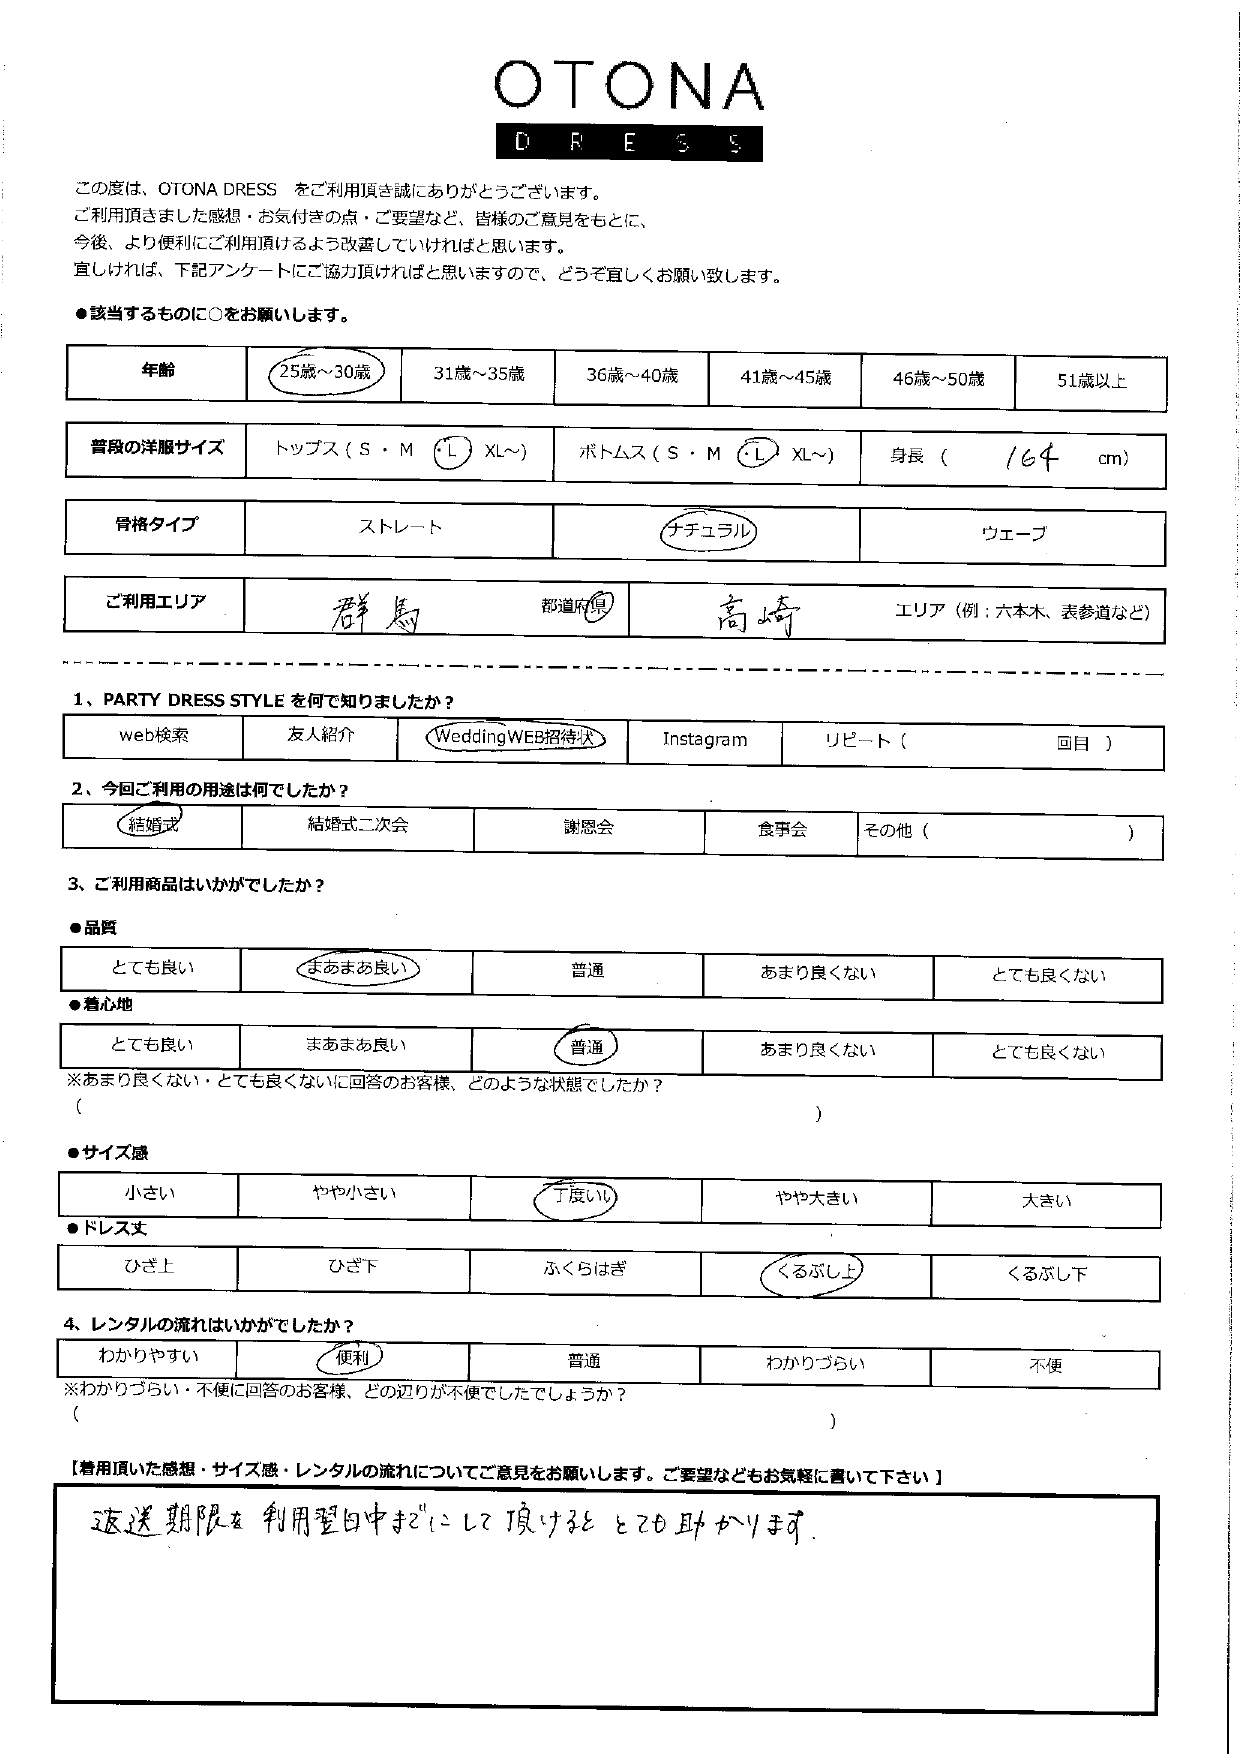 OTONA
DRESS
この度は、OTONA DRESS をご利用頂き誠にありがとうございます。
ご利用頂きました感想・お気付きの点・ご要望など、皆様のご意見をもとに、
今後、より便利にご利用頂けるよう改善していければと思います。
宜しければ、下記アンケートにご協力頂ければと思いますので、どうぞ宜しくお願い致します。
●該当するものに○をお願いします。
年齢 25歳～30歳 31歳～35歳 36歳～40歳 41歳～45歳 46歳～50歳 51歳以上
普段の洋服サイズ トップス ( S ・ M ・L XL～) ボトムス ( S ・ M ・L XL～) 身長 ( 164 cm)
骨格タイプ ストレート ナチュラル ウェーブ
ご利用エリア 群馬 都道府県 高崎 エリア（例；六本木、表参道など）
1、PARTY DRESS STYLE を何で知りましたか？
web検索 友人紹介 WeddingWEB招待状 Instagram リピート（ 回目 ）
2、今回ご利用の用途は何でしたか？
結婚式 結婚式二次会 謝恩会 食事会 その他（ ）
3、ご利用商品はいかがでしたか？
●品質
とても良い まあまあ良い 普通 あまり良くない とても良くない
●着心地
とても良い まあまあ良い 普通 あまり良くない とても良くない
※あまり良くない・とても良くないに回答のお客様、どのような状態でしたか？
( )
●サイズ感
小さい やや小さい 丁度いい やや大きい 大きい
●ドレス丈
ひざ上 ひざ下 ふくらはぎ くるぶし上 くるぶし下
4、レンタルの流れはいかがでしたか？
わかりやすい 便利 普通 わかりづらい 不便
※わかりづらい・不便に回答のお客様、どの辺りが不便でしたでしょうか？
( )
【着用頂いた感想・サイズ感・レンタルの流れについてご意見をお願いします。ご要望などもお気軽に書いて下さい 】
返送期限を利用翌日中までにして頂けるととても助かります.